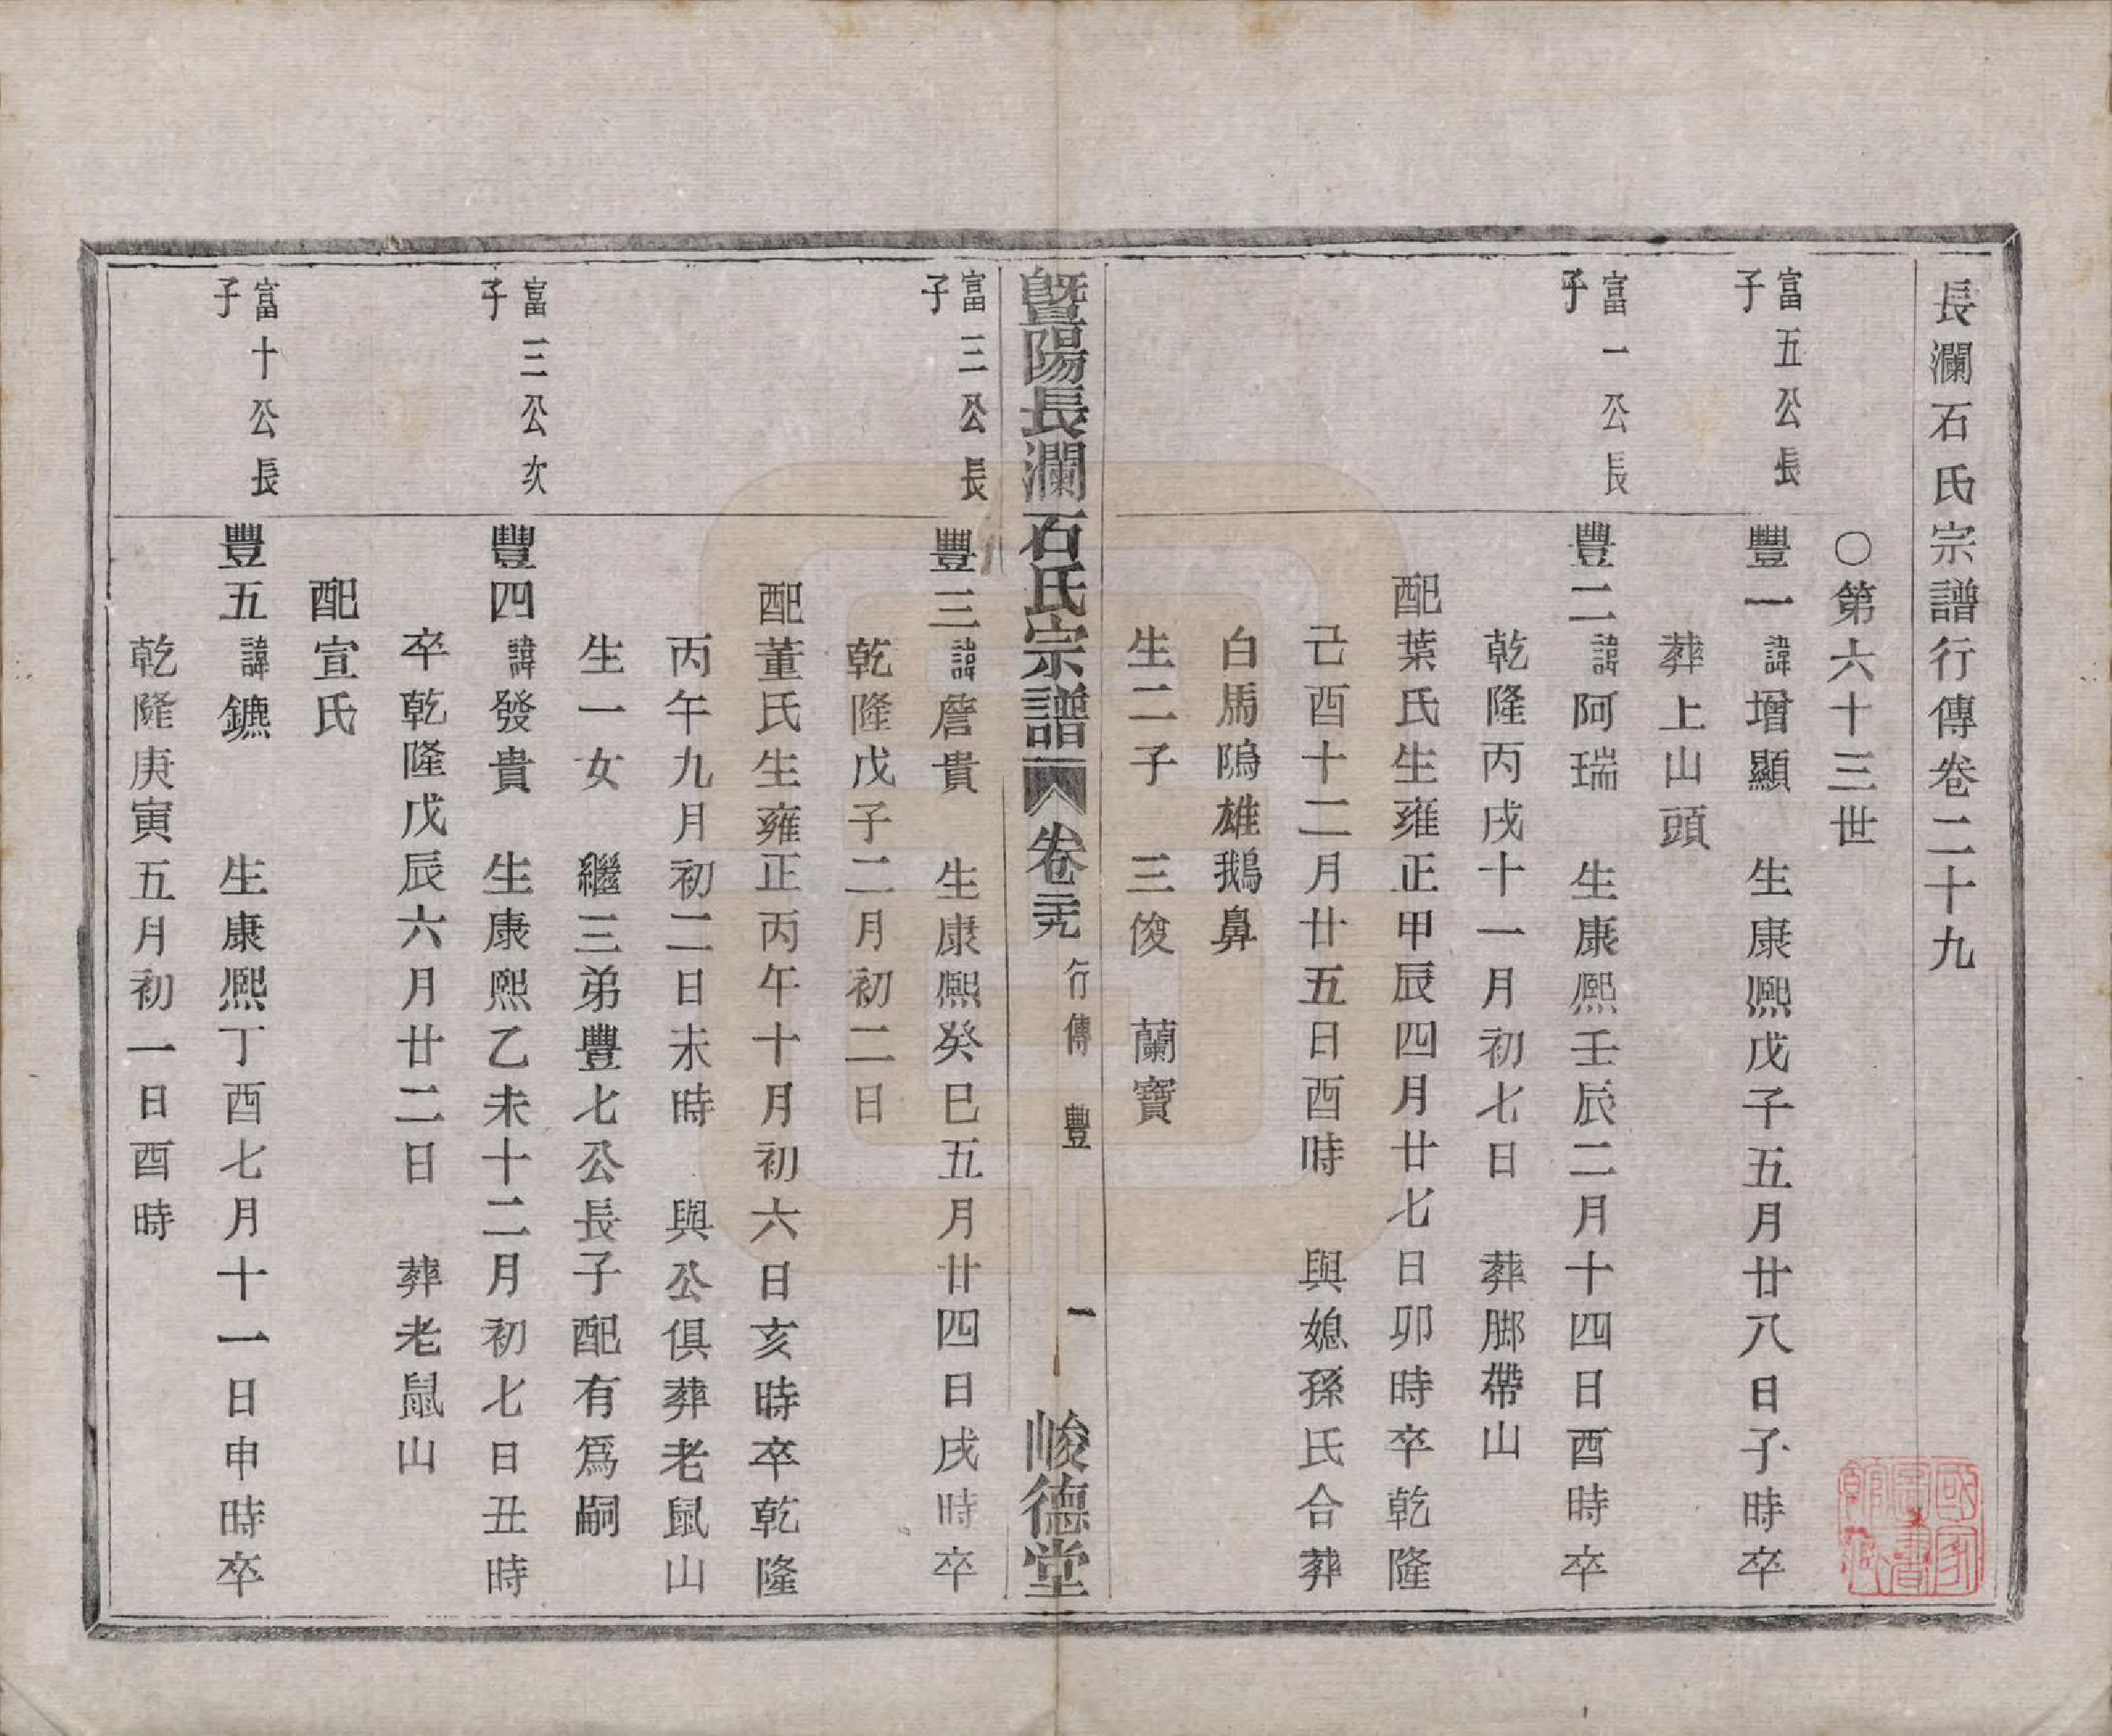 長瀾石氏宗譜行傳卷二十九
○第六十三世
富五公長子
豐一諱增顯 生康熙戊子五月廿八日子時卒
葬上山頭
富一公長子
豐二諱阿瑞 生康熙壬辰二月十四日酉時卒
乾隆丙戌十一月初七日 葬腳帶山
配葉氏生雍正甲辰四月廿七日卯時卒乾隆
己酉十二月廿五日酉時 與媳孫氏合葬
白馬隖雄鵝鼻
生二子 三俊 蘭寶
暨陽長瀾石氏宗譜 卷二十九 行傳 豐 一 峻德堂
富三公長子
豐三諱詹貴 生康熙癸巳五月廿四日戌時卒
乾隆戊子二月初二日
配董氏生雍正丙午十月初六日亥時卒乾隆
丙午九月初二日未時 與公俱葬老鼠山
生一女 繼三弟豐七公長子配有為嗣
富三公次子
豐四諱發貴 生康熙乙未十二月初七日丑時
卒乾隆戊辰六月廿二日 葬老鼠山
配宣氏
富十公長子
豐五諱鑣 生康熙丁酉七月十一日申時卒
乾隆庚寅五月初一日酉時
國家圖書館藏